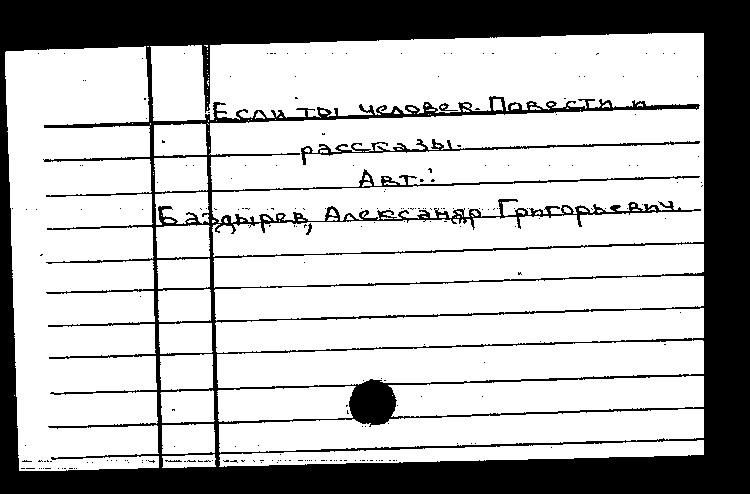 Если ты человек. Повести и
рассказы.
Авт.:
Баздырев, Александр Григорьевич.